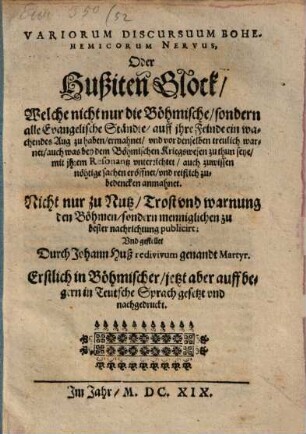 VARIORUM DISCURSUUM BOHE-
HEMICORUM NERVUS,
Oder
Hußiten Glock/
Welche nicht nur die Böhmische/sondern
alle Evangelische Ständte/auff jhre Feinde ein wa-
chendes Aug zu haben/ermahnet/und vor denselben treulich war-
net/auch was bey dem Böhmischen Kriegswesen zu thun seye/
mit jhrem Resonantz unterrichtet/auch zuwissen
nöhtige sachen eröffnet/und reifflich zu-
bedencken anmahnet.
Nicht nur zu Nutz/Trost und warnung
den Böhmen/sondern menniglichen zu
bester nachrichtung publicirt:
Und gestellet
Durch Johann Huß redivivum genandt Martyr.
Erstlich in Böhmischer/jetzt aber auff be-
gern in Teutsche Sprach gesetzt und
nachgedruckt.
Im Jahr/M. DC. XIX.